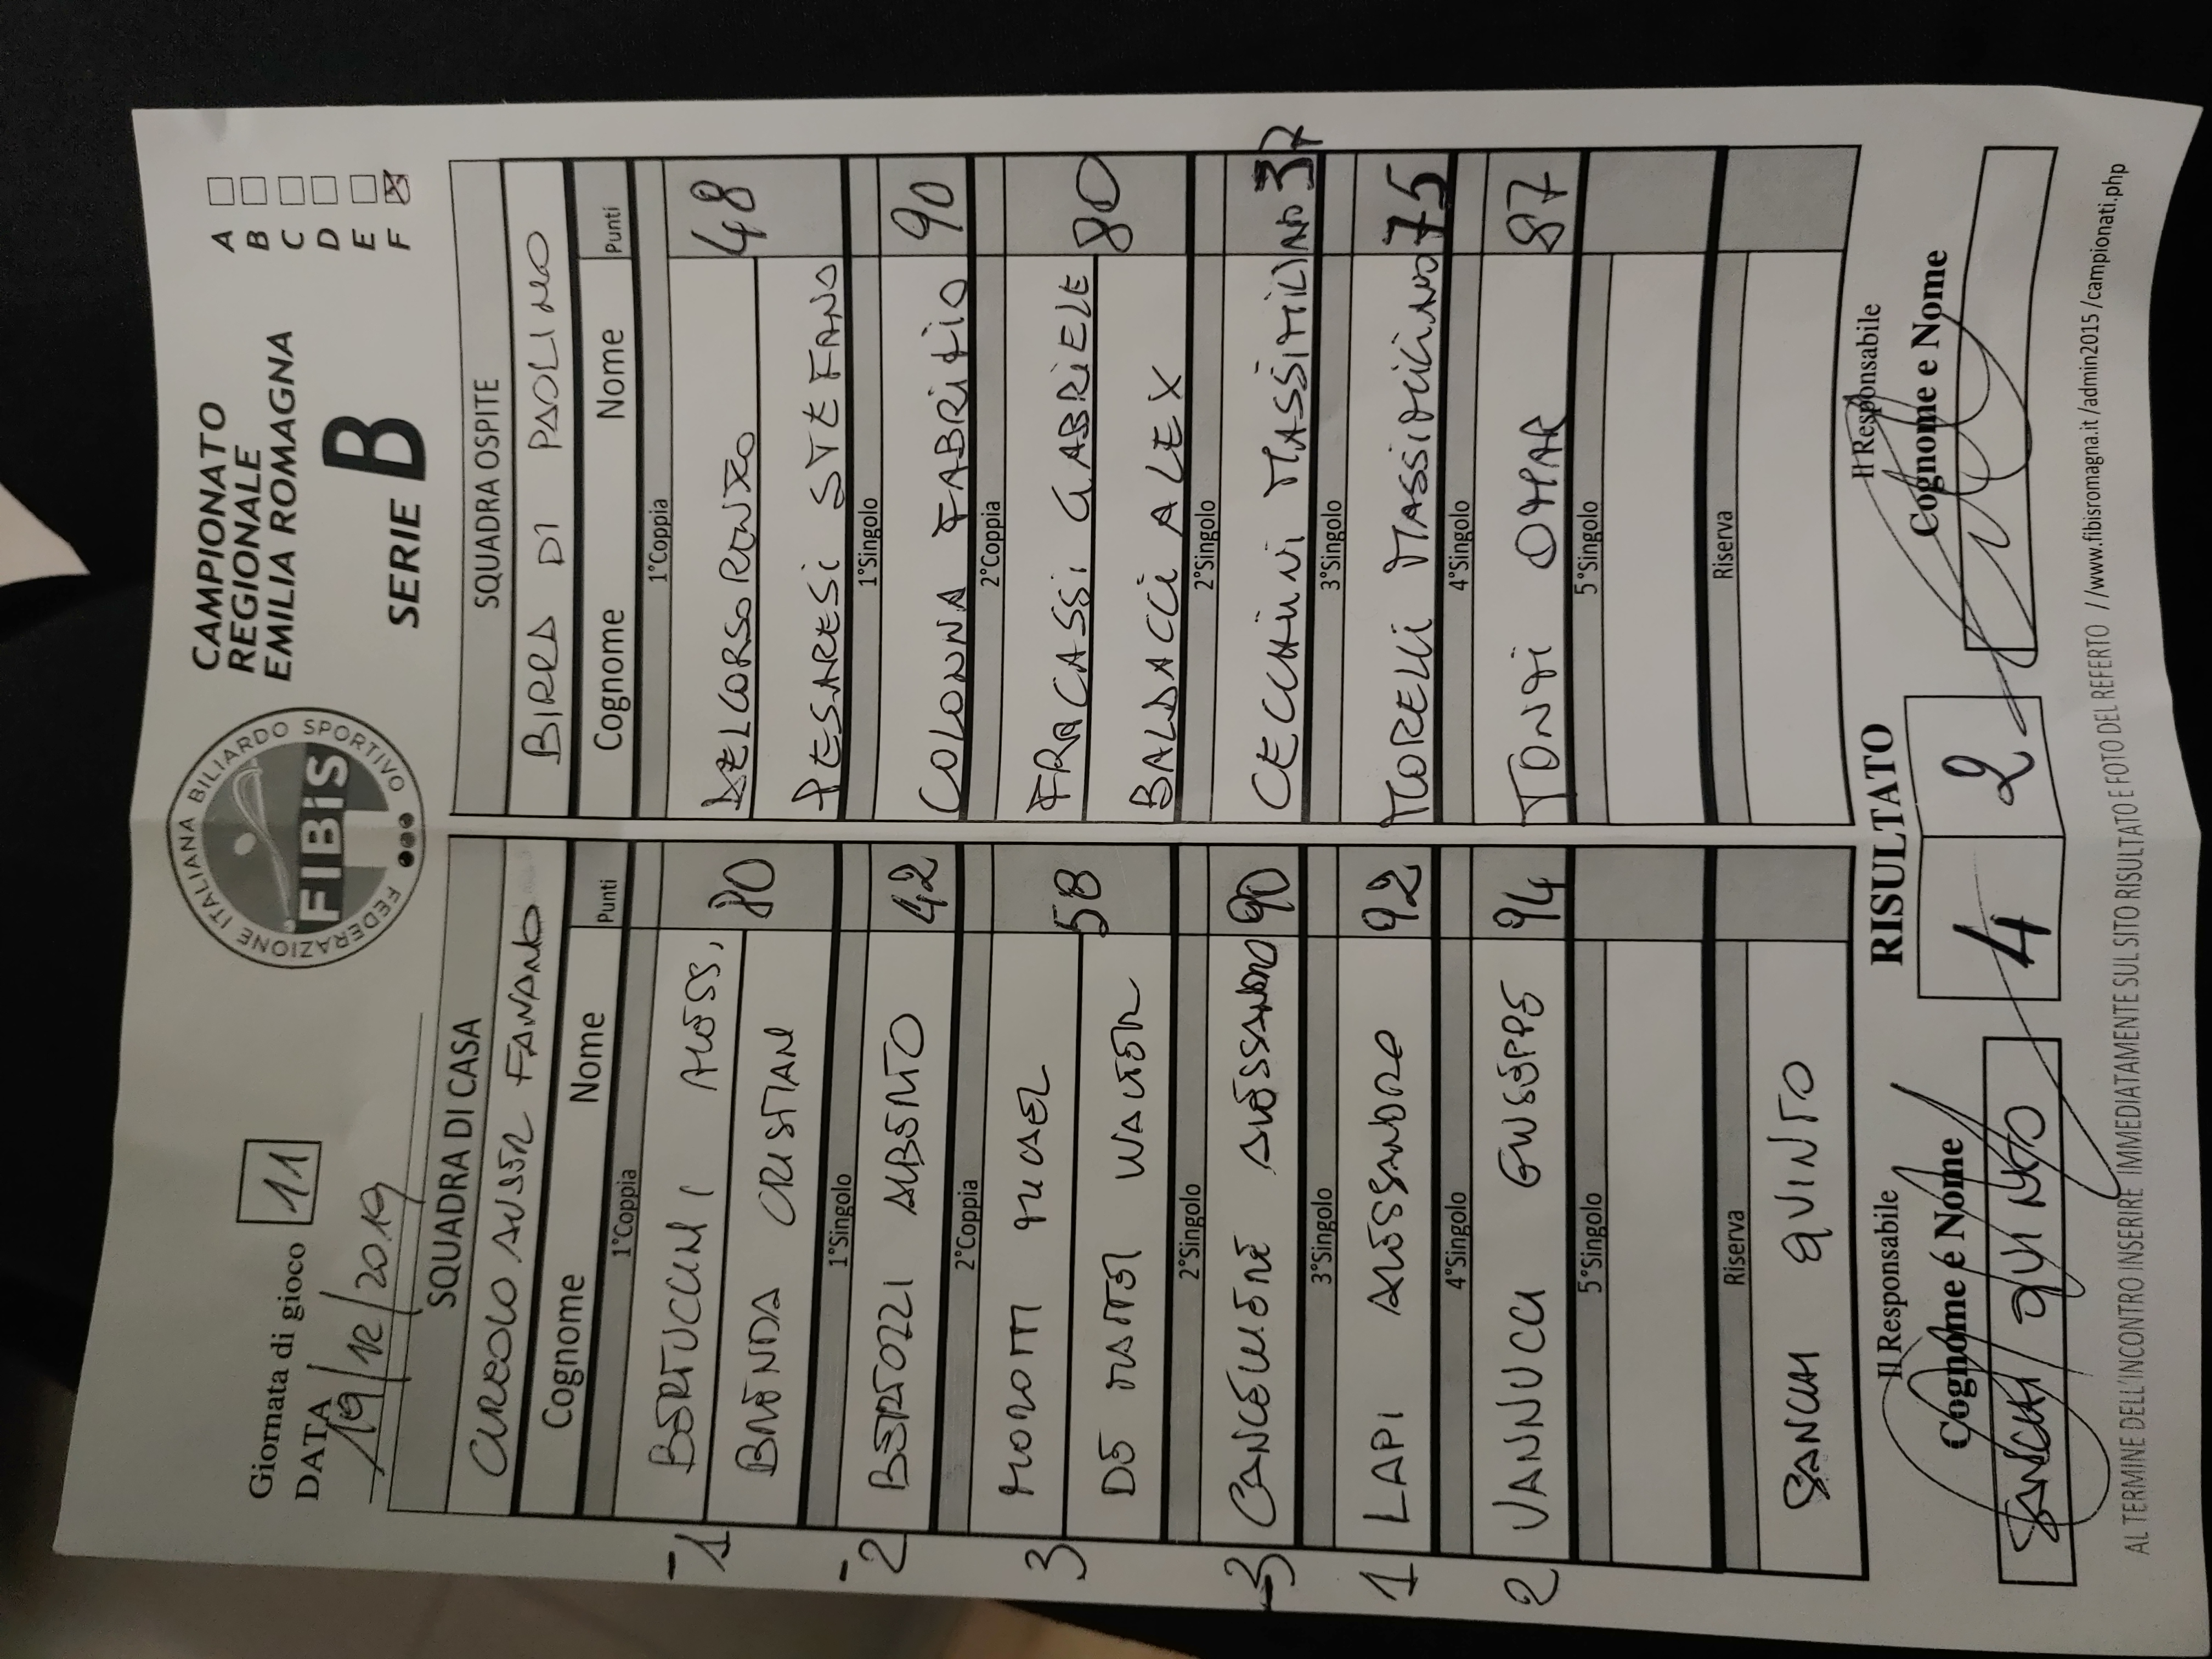 Giornata di gioco 11
DATA 19/12/2019
FEDERAZIONE ITALIANA BILIARDO SPORTIVO
FIBiS
CAMPIONATO
REGIONALE
EMILIA ROMAGNA
SERIE B
A
B
C
D
E
F
SQUADRA DI CASA
CIRCOLO AUSER FANANO
Cognome Nome Punti
1°Coppia
-1 BERTUCCINI ALESS, 80
BRENDA CRISTIAN
1°Singolo
-2 BERTOZZI ALBERTO 42
2°Coppia
3 MOROTTI MICAEL 58
DE WALTER
2°Singolo
-3 ALESSANDRO 90
3°Singolo
1 LAPI ALESSANDRO 92
4°Singolo
2 VANNUCCI GIUSEPPE 94
5°Singolo
Riserva
SANCHI QUINTO
SQUADRA OSPITE
BIRRA DI PAOLINO
Cognome Nome Punti
1°Coppia
DELCORSO RENZO 48
PESARESI STEFANO
1°Singolo
COLONNA FABRIZIO 90
2°Coppia
FRACASSI GABRIELE 80
BALDACCI ALEX
2°Singolo
CECCHINI MASSIMILIANO 37
3°Singolo
TORELLI MASSIMILIANO 75
4°Singolo
TONTI OMAR 87
5°Singolo
Riserva
Il Responsabile
Cognome é Nome
SANCHI QUINTO
RISULTATO
4 2
Il Responsabile
Cognome e Nome
AL TERMINE DELL'INCONTRO INSERIRE IMMEDIATAMENTE SUL SITO RISULTATO E FOTO DEL REFERTO //www.fibisromagna.it/admin2015/campionati.php